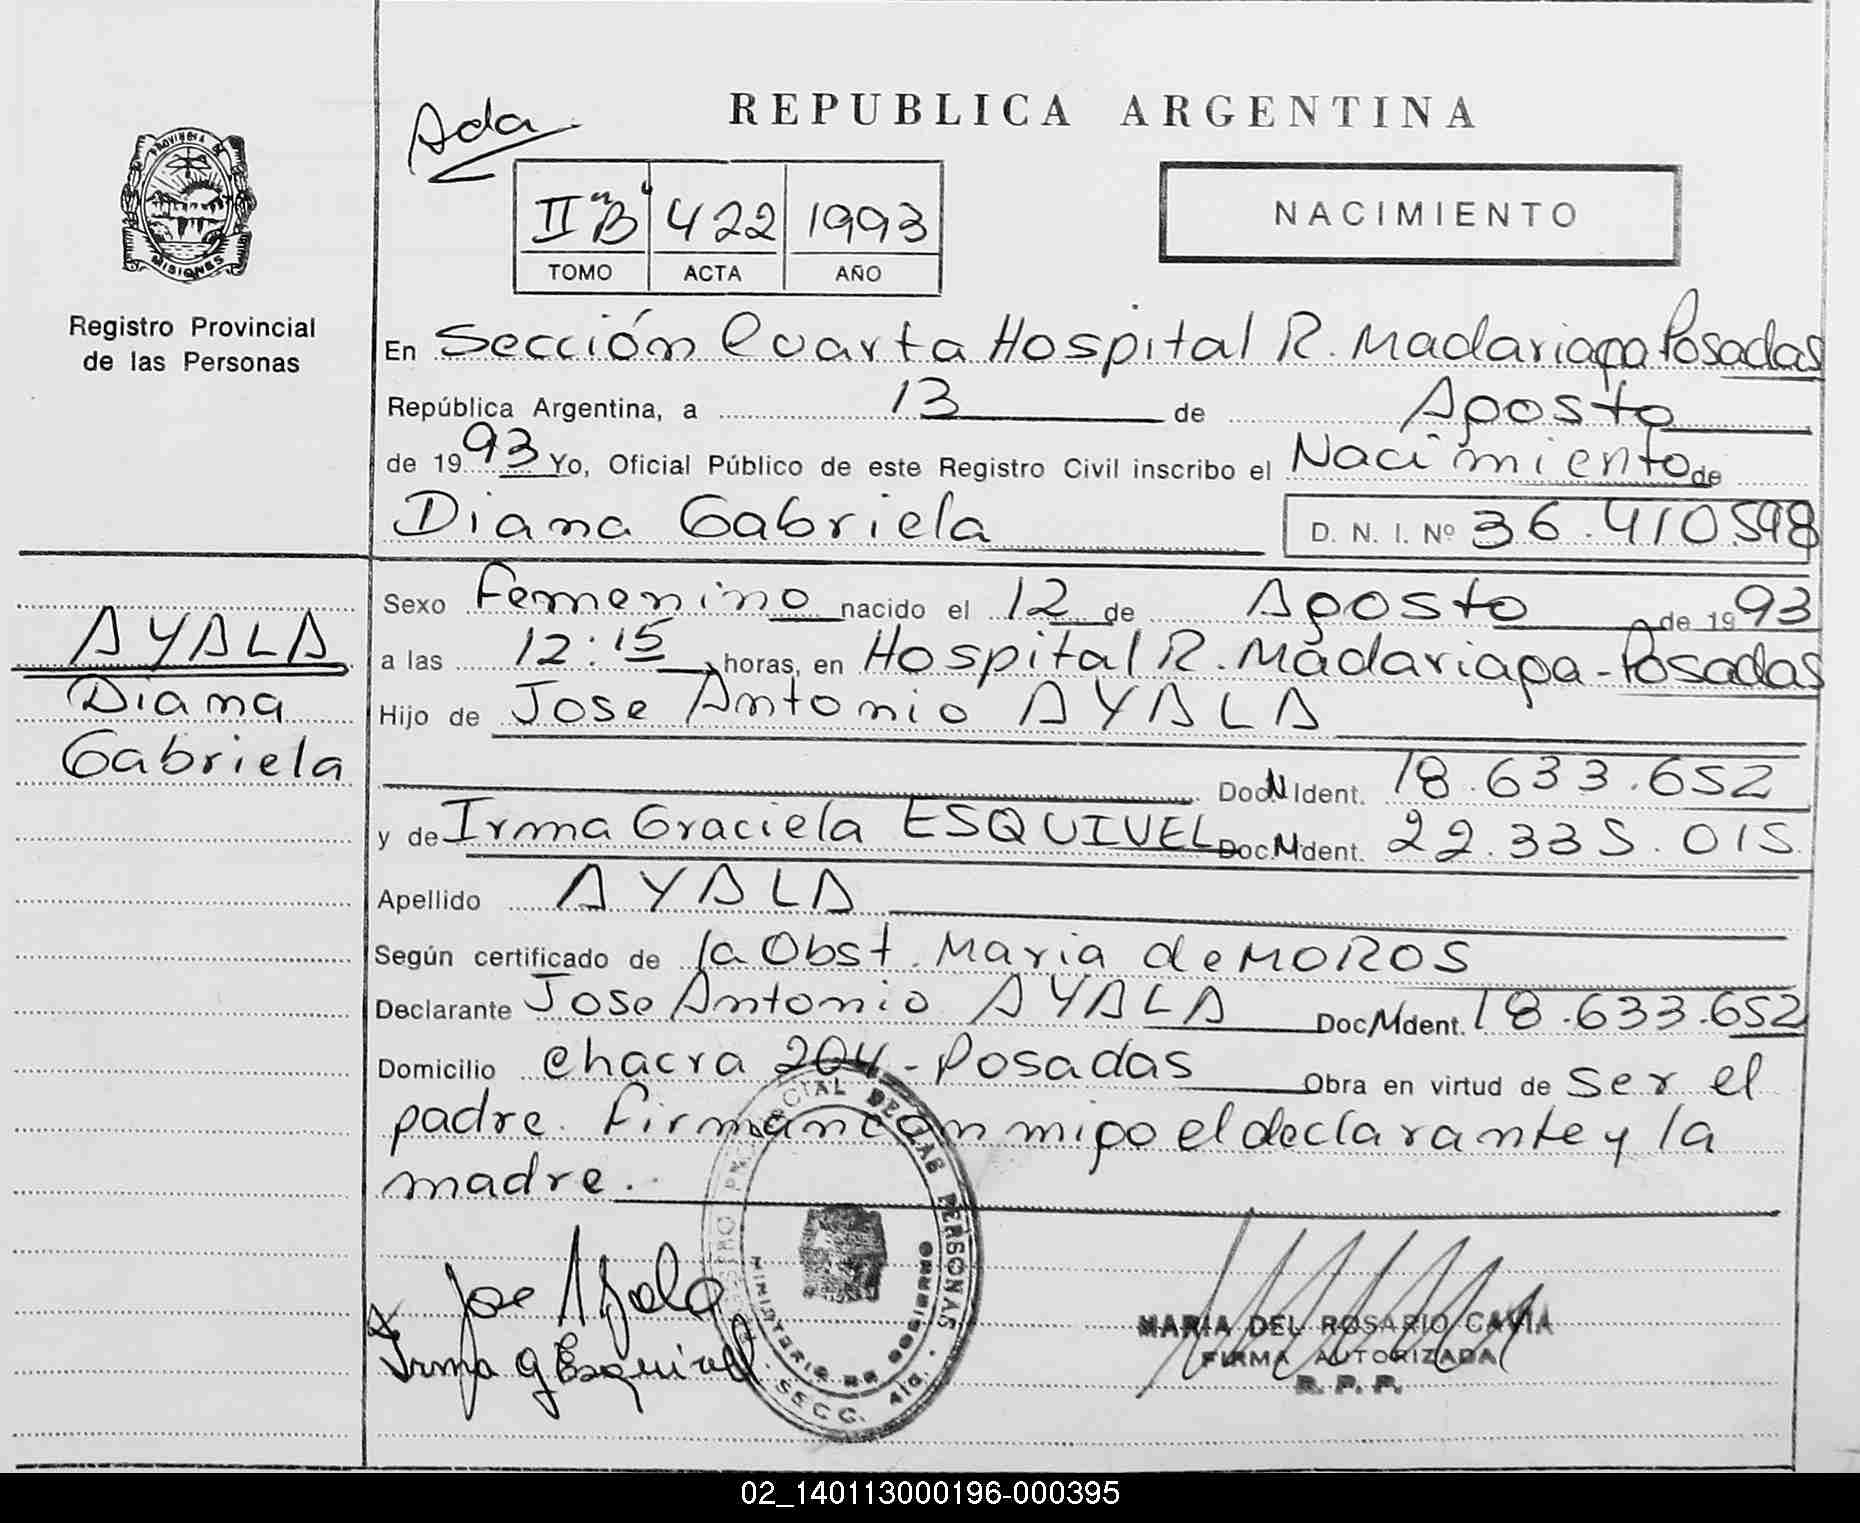 REPUBLICA ARGENTINA
Ada
PROVINCIA DE
MISIONES
II "B" 422 1993
TOMO ACTA AÑO
NACIMIENTO
Registro Provincial
de las Personas
En Sección Cuarta Hospital R. Madariaga Posadas
República Argentina, a 13 de Agosto
de 1993 Yo, Oficial Público de este Registro Civil inscribo el Nacimiento de
Diana Gabriela D. N. I. Nº 36.410.598
AYALA
Diana
Gabriela
Sexo Femenino nacido el 12 de Agosto de 1993
a las 12:15 horas, en Hospital R. Madariaga - Posadas
Hijo de Jose Antonio AYALA
Doc. N Ident. 18.633.652
y de Irma Graciela ESQUIVEL Doc. N Ident. 22.335.015
Apellido AYALA
Según certificado de la Obst. Maria de MOROS
Declarante Jose Antonio AYALA Doc. N Ident. 18.633.652
Domicilio chacra 204 - Posadas Obra en virtud de ser el
padre. Firman con migo el declarante y la
madre.
REGISTRO PROVINCIAL DE LAS PERSONAS
MINISTERIO DE GOBIERNO
SECC. 4ta.
Jose Ayala
Irma G Esquivel
MARIA DEL ROSARIO CAVIA
FIRMA AUTORIZADA
R. P. P.
02_140113000196-000395